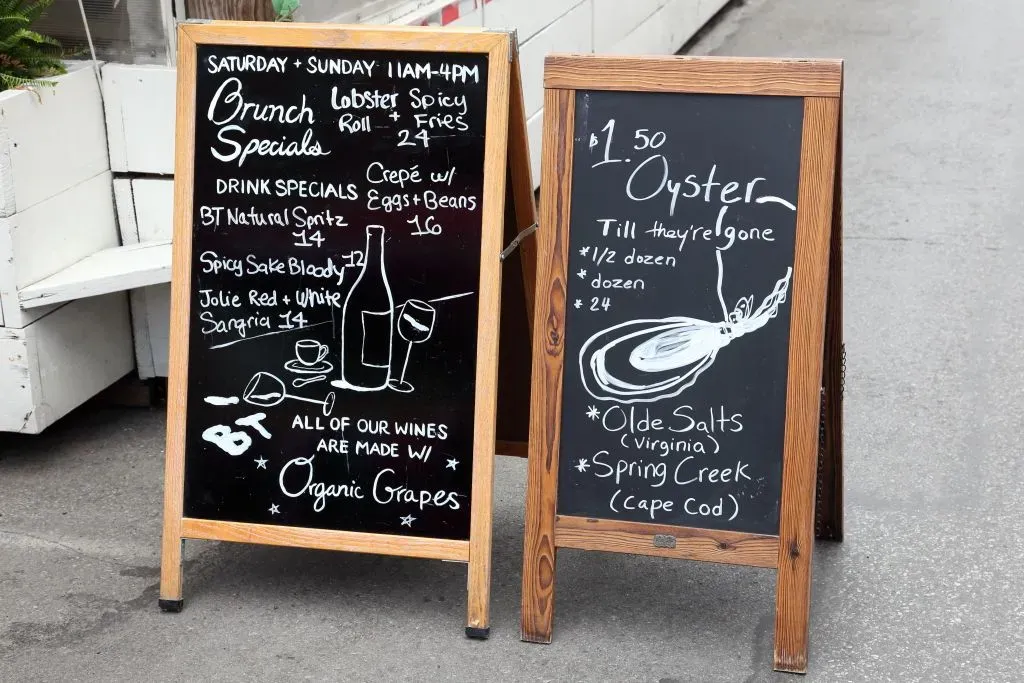 SATURDAY + SUNDAY 11AM-4PM
Brunch
Specials
Lobster Spicy
Roll + Fries
24
Crepé w/
Eggs + Beans
16
DRINK SPECIALS
BT Natural Spritz
14
Spicy Sake Bloody 12
Jolie Red + White
Sangria 14
BT
ALL OF OUR WINES
ARE MADE W/
Organic Grapes
$1.50
Oyster
Till they're gone
* 1/2 dozen
* dozen
* 24
* Olde Salts
(Virginia)
* Spring Creek
(Cape Cod)